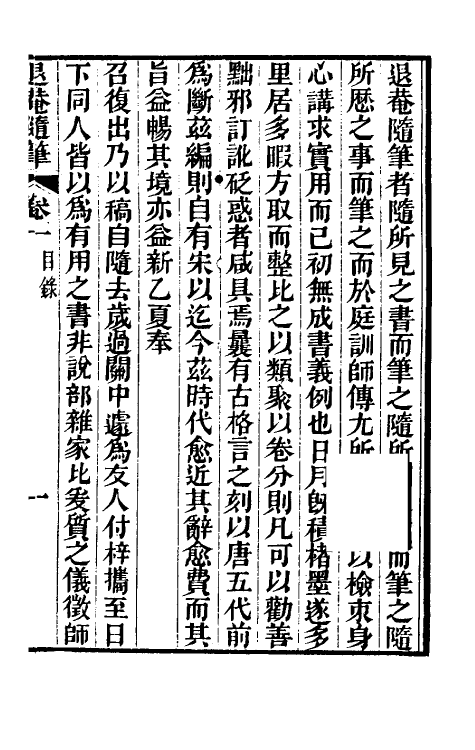 退菴隨筆者隨所見之書而筆之隨所而筆之隨
所歷之事而筆之而於庭訓師傳尤所以檢束身
心講求實用而已初無成書義例也日月旣積楮墨遂多
里居多暇方取而整比之以類聚以卷分則凡可以勸善
黜邪訂訛砭惑者咸具焉曩有古格言之刻以唐五代前
爲斷茲編則自有宋以迄今茲時代愈近其辭愈費而其
旨益暢其境亦益新乙夏奉
召復出乃以稿自隨去歲過關中遽爲友人付梓攜至日
下同人皆以爲有用之書非說部雜家比爰質之儀徵師
退菴隨筆
卷一
目錄
一